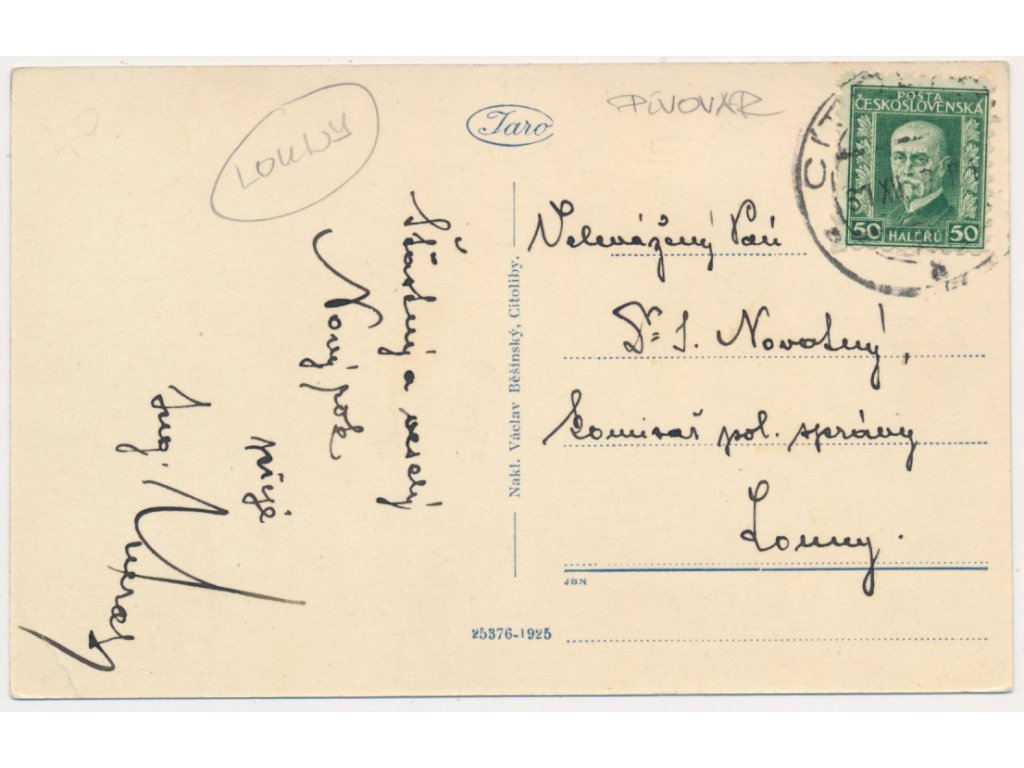 LOUNY
Taro
PIVOVAR
POŠTA
ČESKOSLOVENSKÁ
50 HALÉŘŮ 50
Šťastný a veselý
Nový rok
přeje
Ing.
Nakl. Václav Běšínský, Citoliby.
Velevážený Pán
Dr. J. Novotný,
komisař pol. správy
Louny.
JBN
25376-1925